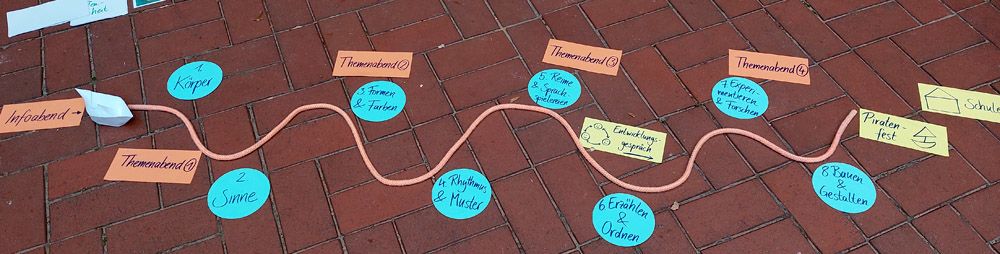 Infoabend
Themenabend ①
1.
Körper
2
Sinne
Themenabend ②
3. Formen
& Farben
4. Rhythmus
& Muster
Themenabend ③
5. Reime
& Sprach-
spielereien
Entwicklungs-
gespräch
6 Erzählen
&
Ordnen
Themenabend ④
7. Experi-
mentieren
& Forschen
8 Bauen
&
Gestalten
Piraten-
fest
Schule